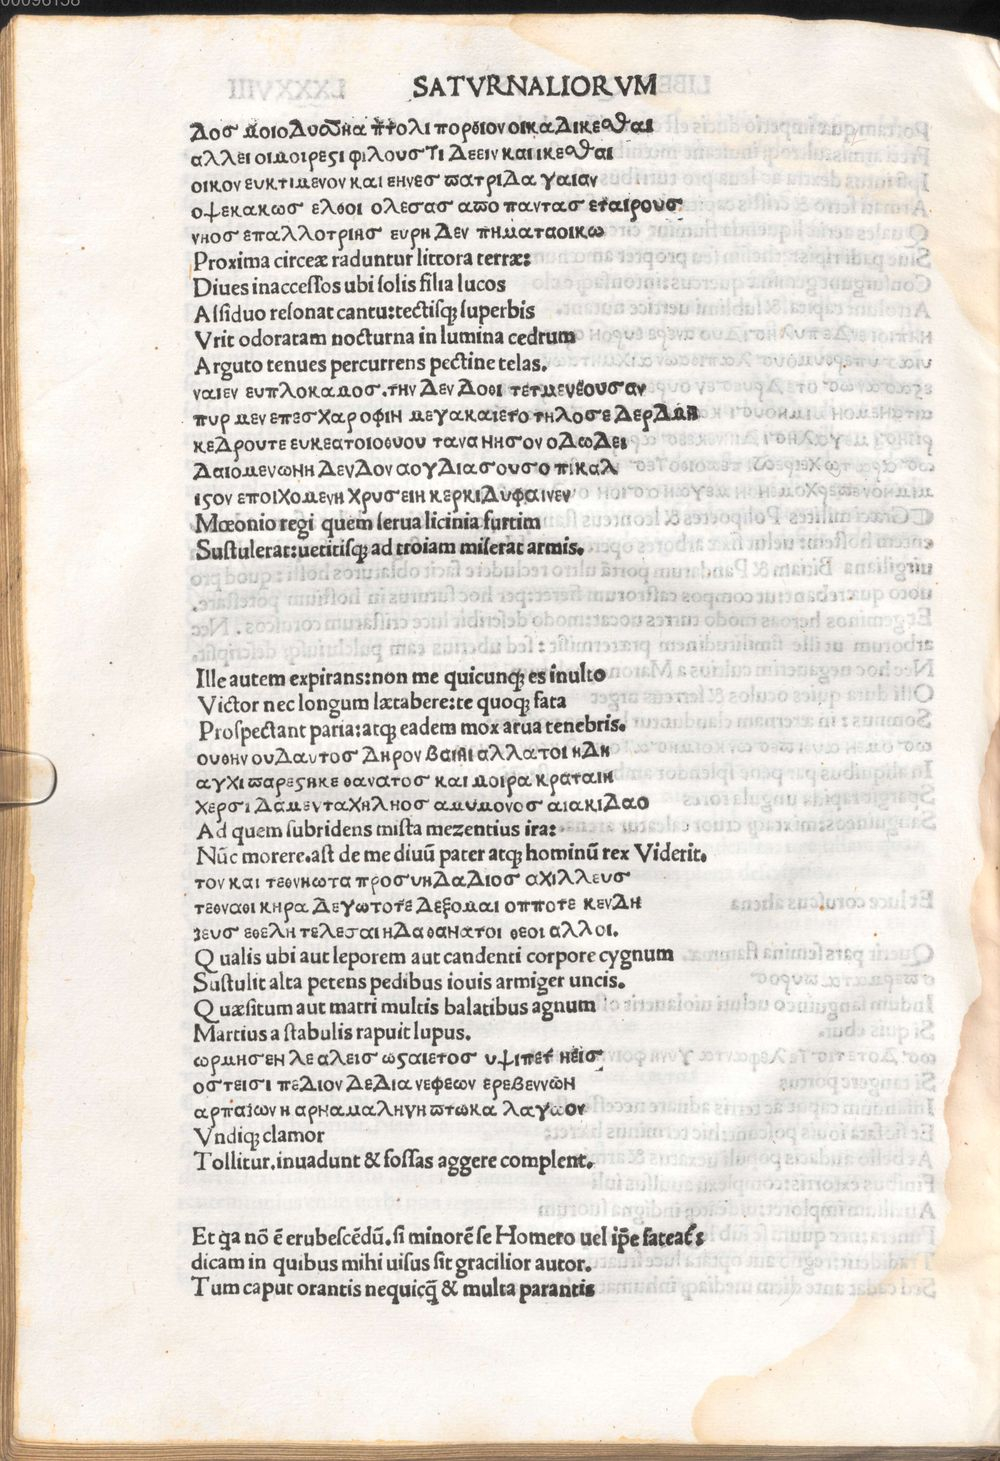 00096158
SATVRNALIORVM
Δοσ μοιοΔυσσηα πτολι πορθιονοικαΔικεσθαι
αλλει οιμοιρεςι φιλουσ τι Δεειν και ικεσθαι
οικον ευκτιμενον και εηνεσ πατριΔα γαιαν
οψεκακωσ ελθοι ολεσασ απο παντασ εταιρουσ
νηοσ επαλλοτριησ ευρη Δεν πηματαοικω
Proxima circeæ raduntur littora terræ:
Diues inaccessos ubi solis filia lucos
Assiduo resonat cantu:tectisq; superbis
Vrit odoratam nocturna in lumina cedrum
Arguto tenues percurrens pectine telas.
ναιεν ευπλοκαμοσ.την Δεν Δοθι τετμενεουσαν
πυρ μεν επεσ χαροφιη μεγακαιετο τηλοσε ΔερΔμη
κεΔρουτε ευκεατοιοθυου τανα νησον οΔωΔει
Δαιομενωνη ΔενΔον αουΔιασουσο πικαλ
ιςον εποιχομενη χρυσειη κερκιΔυφαινεν
Mœonio regi quem serua licinia furtim
Sustulerat:uetitisq; ad troiam miserat armis.
Ille autem expirans:non me quicunq; es inulto
Victor nec longum lætabere:te quoq; fata
Prospectant paria:atq; eadem mox arua tenebris.
ουθην ουΔαυτοσ Δηρον βαιηι αλλατοι ηΔη
αγχι παρεςηκε θανατοσ και μοιρα κραταιη
χερσι Δαμενταχηληοσ αμυμονοσ αιακιΔαο
Ad quem subridens mista mezentius ira:
Nūc morere.ast de me diuū pater atq; hominū rex Viderit.
τον και τεθνηωτα προσ υηΔαΔιοσ αχιλλευσ
τεθναθι κηρα Δεγωτοτε Δεξομαι οπποτε κενΔη
ζευσ εθελη τελεσαι ηΔαθανατοι θεοι αλλοι.
Qualis ubi aut leporem aut candenti corpore cygnum
Sustulit alta petens pedibus iouis armiger uncis.
Quæsitum aut matri multis balatibus agnum
Martius a stabulis rapuit lupus.
ωρμησεν λε αλεισ ωςαιετοσ υψιπετ ηεισ
οστεισι πεΔιον ΔεΔια νεφεων ερεβεννων
αρπαζων η αρναμαληνη πτωκα λαγωον
Vndiq; clamor
Tollitur.inuadunt & fossas aggere complent.
Et q̇a nō ē erubescēdū.si minorē se Homero uel ip̄e fateat̄:
dicam in quibus mihi uisus sit gracilior autor.
Tum caput orantis nequicq̄ & multa parantis